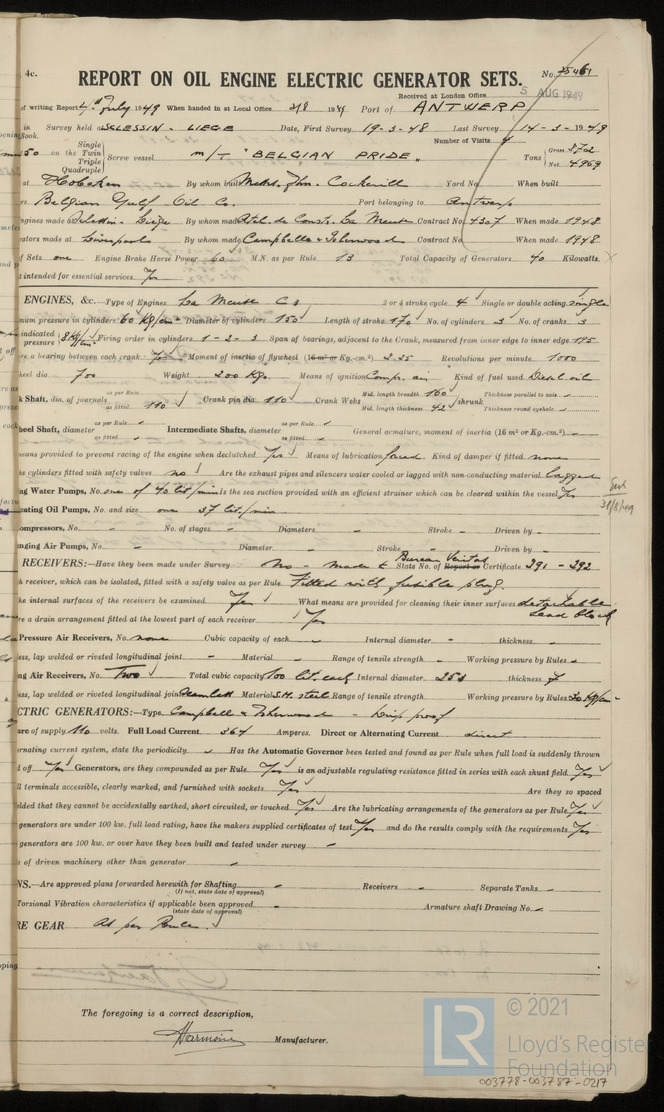 4c.
REPORT ON OIL ENGINE ELECTRIC GENERATOR SETS.
No. 25461
Received at London Office 5 AUG 1949
of writing Report 4th July 1949 When handed in at Local Office 2/8 1949 Port of ANTWERP
in Survey held at SCLESSIN - LIEGE Date, First Survey 19-3-48 Last Survey 14-3-1949
Book.
Number of Visits 4
on the Single Twin Triple Quadruple Screw vessel M/T "BELGIAN PRIDE" Tons Gross Net 4969
at Hoboken By whom built Yard No. When built
Belgian Gulf Oil Co. Port belonging to Antwerp
ngines made at Sclessin - Liege By whom made Atel. de Constr. La Meuse Contract No. 4307 When made 1948
ators made at Liverpool By whom made Campbell & Isherwood Contract No. When made 1948
f Sets one Engine Brake Horse Power 60 M.N. as per Rule 13 Total Capacity of Generators 40 Kilowatts.
t intended for essential services Yes
ENGINES, &c. Type of Engines La Meuse C3 2 or 4 stroke cycle 4 Single or double acting single
mum pressure in cylinders 60 Kg/cm² Diameter of cylinders 150 Length of stroke 170 No. of cylinders 3 No. of cranks 3
indicated pressure 8 Kg/cm² Firing order in cylinders 1-2-3 Span of bearings, adjacent to the Crank, measured from inner edge to inner edge 185
re a bearing between each crank Yes Moment of inertia of flywheel (16 m² or Kg.-cm.²) 2.25 Revolutions per minute 1000
heel dia 700 Weight 200 Kgs. Means of ignition Comp. air Kind of fuel used Diesel oil
k Shaft, dia. of journals as per Rule as fitted 110 Crank pin dia 110 Crank Webs Mid. length breadth 160 Mid. length thickness 42 shrunk Thickness parallel to axis - Thickness round eyehole -
heel Shaft, diameter as per Rule - as fitted - Intermediate Shafts, diameter as per Rule - as fitted - General armature, moment of inertia (16 m² or Kg.-cm.²) -
means provided to prevent racing of the engine when declutched Yes Means of lubrication forced Kind of damper if fitted none
he cylinders fitted with safety valves no Are the exhaust pipes and silencers water cooled or lagged with non-conducting material lagged
ng Water Pumps, No. one of 40 lit/min Is the sea suction provided with an efficient strainer which can be cleared within the vessel Yes
31/8/49
cating Oil Pumps, No. and size one 37 lit./min
ompressors, No. - No. of stages - Diameters - Stroke - Driven by -
nging Air Pumps, No. - Diameter - Stroke - Driven by -
RECEIVERS:—Have they been made under Survey No - made to Bureau Veritas State No. of Report or Certificate 391 - 392
h receiver, which can be isolated, fitted with a safety valve as per Rule Fitted with fusible plug.
he internal surfaces of the receivers be examined Yes What means are provided for cleaning their inner surfaces detachable head block
re a drain arrangement fitted at the lowest part of each receiver Yes
Pressure Air Receivers, No. none Cubic capacity of each - Internal diameter - thickness -
ss, lap welded or riveted longitudinal joint - Material - Range of tensile strength - Working pressure by Rules -
ng Air Receivers, No. Two Total cubic capacity 100 lit. each Internal diameter thickness 7
ss, lap welded or riveted longitudinal joint Seamless Material S.M. steel Range of tensile strength Working pressure by Rules 30 Kg/cm²
CTRIC GENERATORS:—Type Campbell & Isherwood - Drip proof
ure of supply 110 volts. Full Load Current 364 Amperes. Direct or Alternating Current direct
ernating current system, state the periodicity. Has the Automatic Governor been tested and found as per Rule when full load is suddenly thrown
d off Yes Generators, are they compounded as per Rule Yes is an adjustable regulating resistance fitted in series with each shunt field Yes
ll terminals accessible, clearly marked, and furnished with sockets Yes Are they so spaced
elded that they cannot be accidentally earthed, short circuited, or touched Yes Are the lubricating arrangements of the generators as per Rule Yes
generators are under 100 kw. full load rating, have the makers supplied certificates of test Yes and do the results comply with the requirements Yes
generators are 100 kw. or over have they been built and tested under survey -
s of driven machinery other than generator -
NS.—Are approved plans forwarded herewith for Shafting - Receivers - Separate Tanks -
(If not, state date of approval)
Torsional Vibration characteristics if applicable been approved - Armature shaft Drawing No. -
(state date of approval)
RE GEAR As per Rule.
The foregoing is a correct description,
Manufacturer.
LR © 2021
Lloyd's Register
Foundation
003778-003787-0217